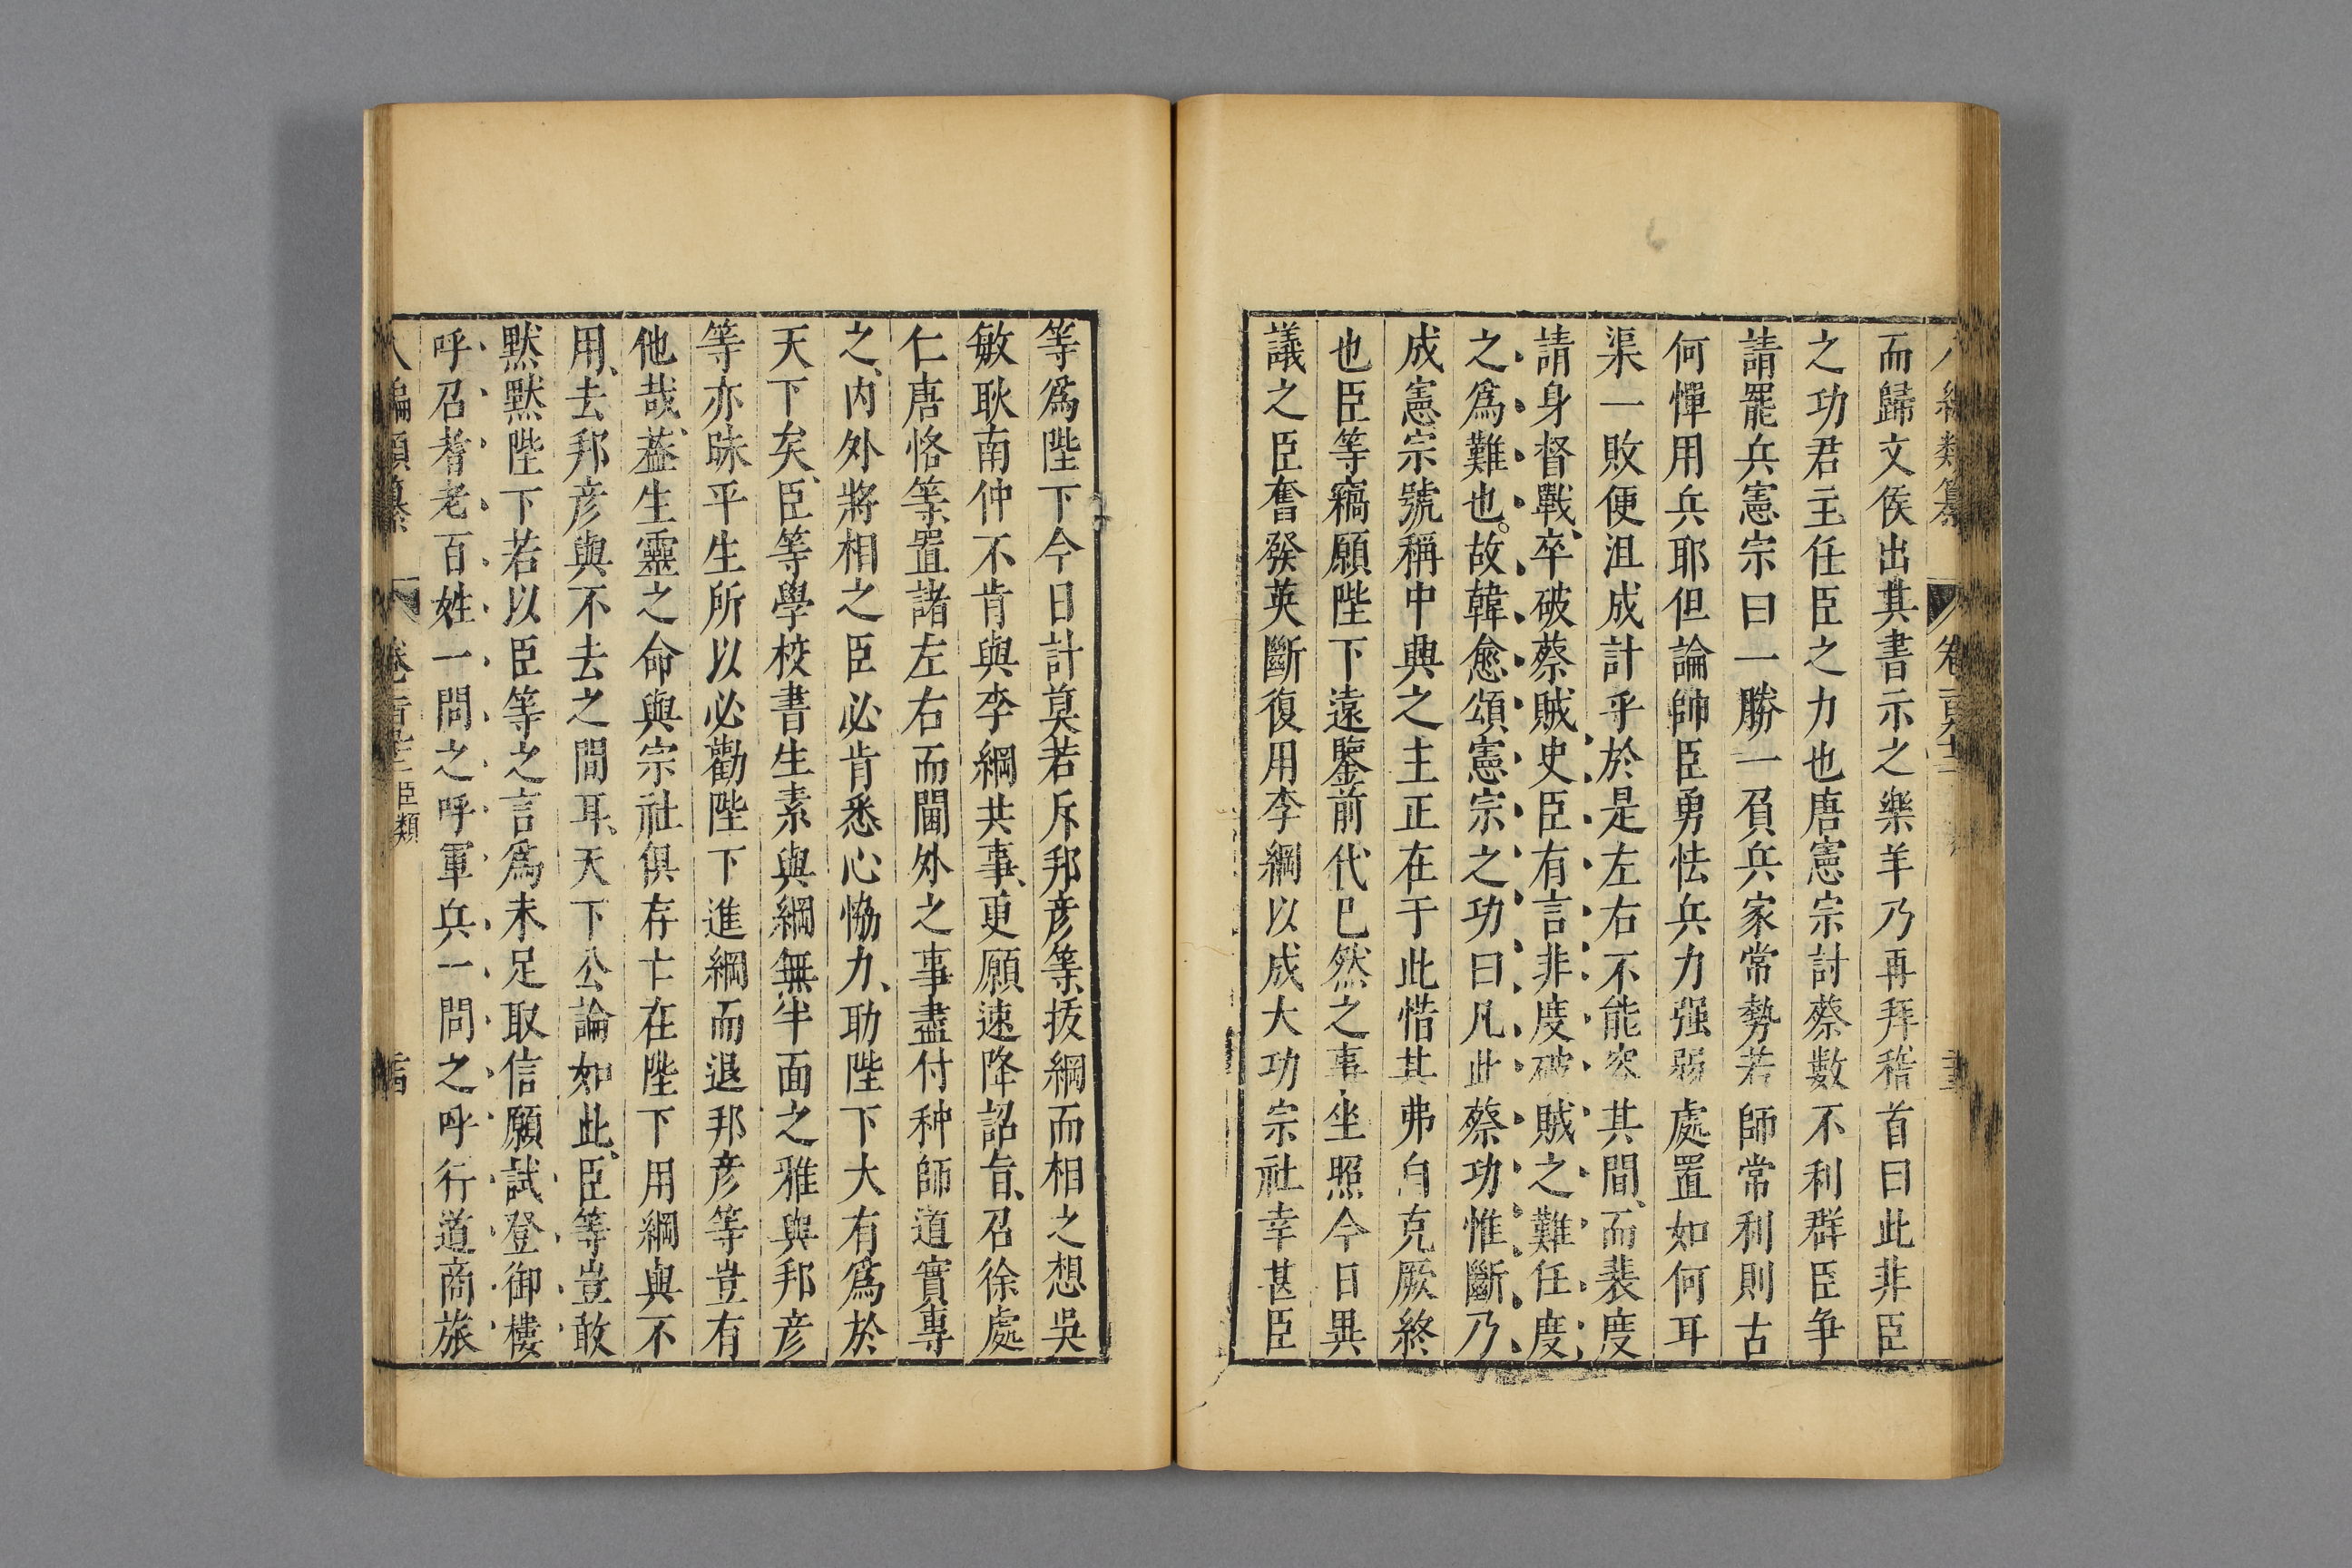 而歸文侯出其書示之樂羊乃再拜稽首曰此非臣
之功君主任臣之力也唐憲宗討蔡數不利群臣争
請罷兵憲宗曰一勝一負兵家常勢若師常利則古
何憚用兵耶但論帥臣勇怯兵力强弱處置如何耳
渠一敗便沮成計乎於是左右不能容其間、而裴度
請身督戰、卒破蔡賊史臣有言非度破賊之難任度
之爲難也。故韓愈頌憲宗之功曰凡此蔡功惟斷乃
成憲宗號稱中興之主正在于此惜其弗自克厥終
也臣等竊願陛下遠鑒前代已然之事坐照今日異
議之臣奮發英斷復用李綱以成大功宗社幸甚臣
等爲陛下今日計莫若斥邦彦等、拔綱而相之想吳
敏耿南仲不肯與李綱共事、更願速降詔旨、召徐處
仁唐恪等、置諸左右而閫外之事盡付种師道實專
之、内外將相之臣必肯悉心恊力、助陛下大有爲於
天下矣、臣等學校書生素與綱無半面之雅與邦彦
等亦昧平生所以必勸陛下進綱而退邦彦等豈有
他哉、葢生靈之命與宗社俱存亡在陛下用綱與不
用、去邦彦與不去之間耳、天下公論如此、臣等豈敢
黙黙陛下若以臣等之言爲未足取信願試登御樓
呼召耆老百姓一問之呼軍兵一問之呼行道商旅
臣類